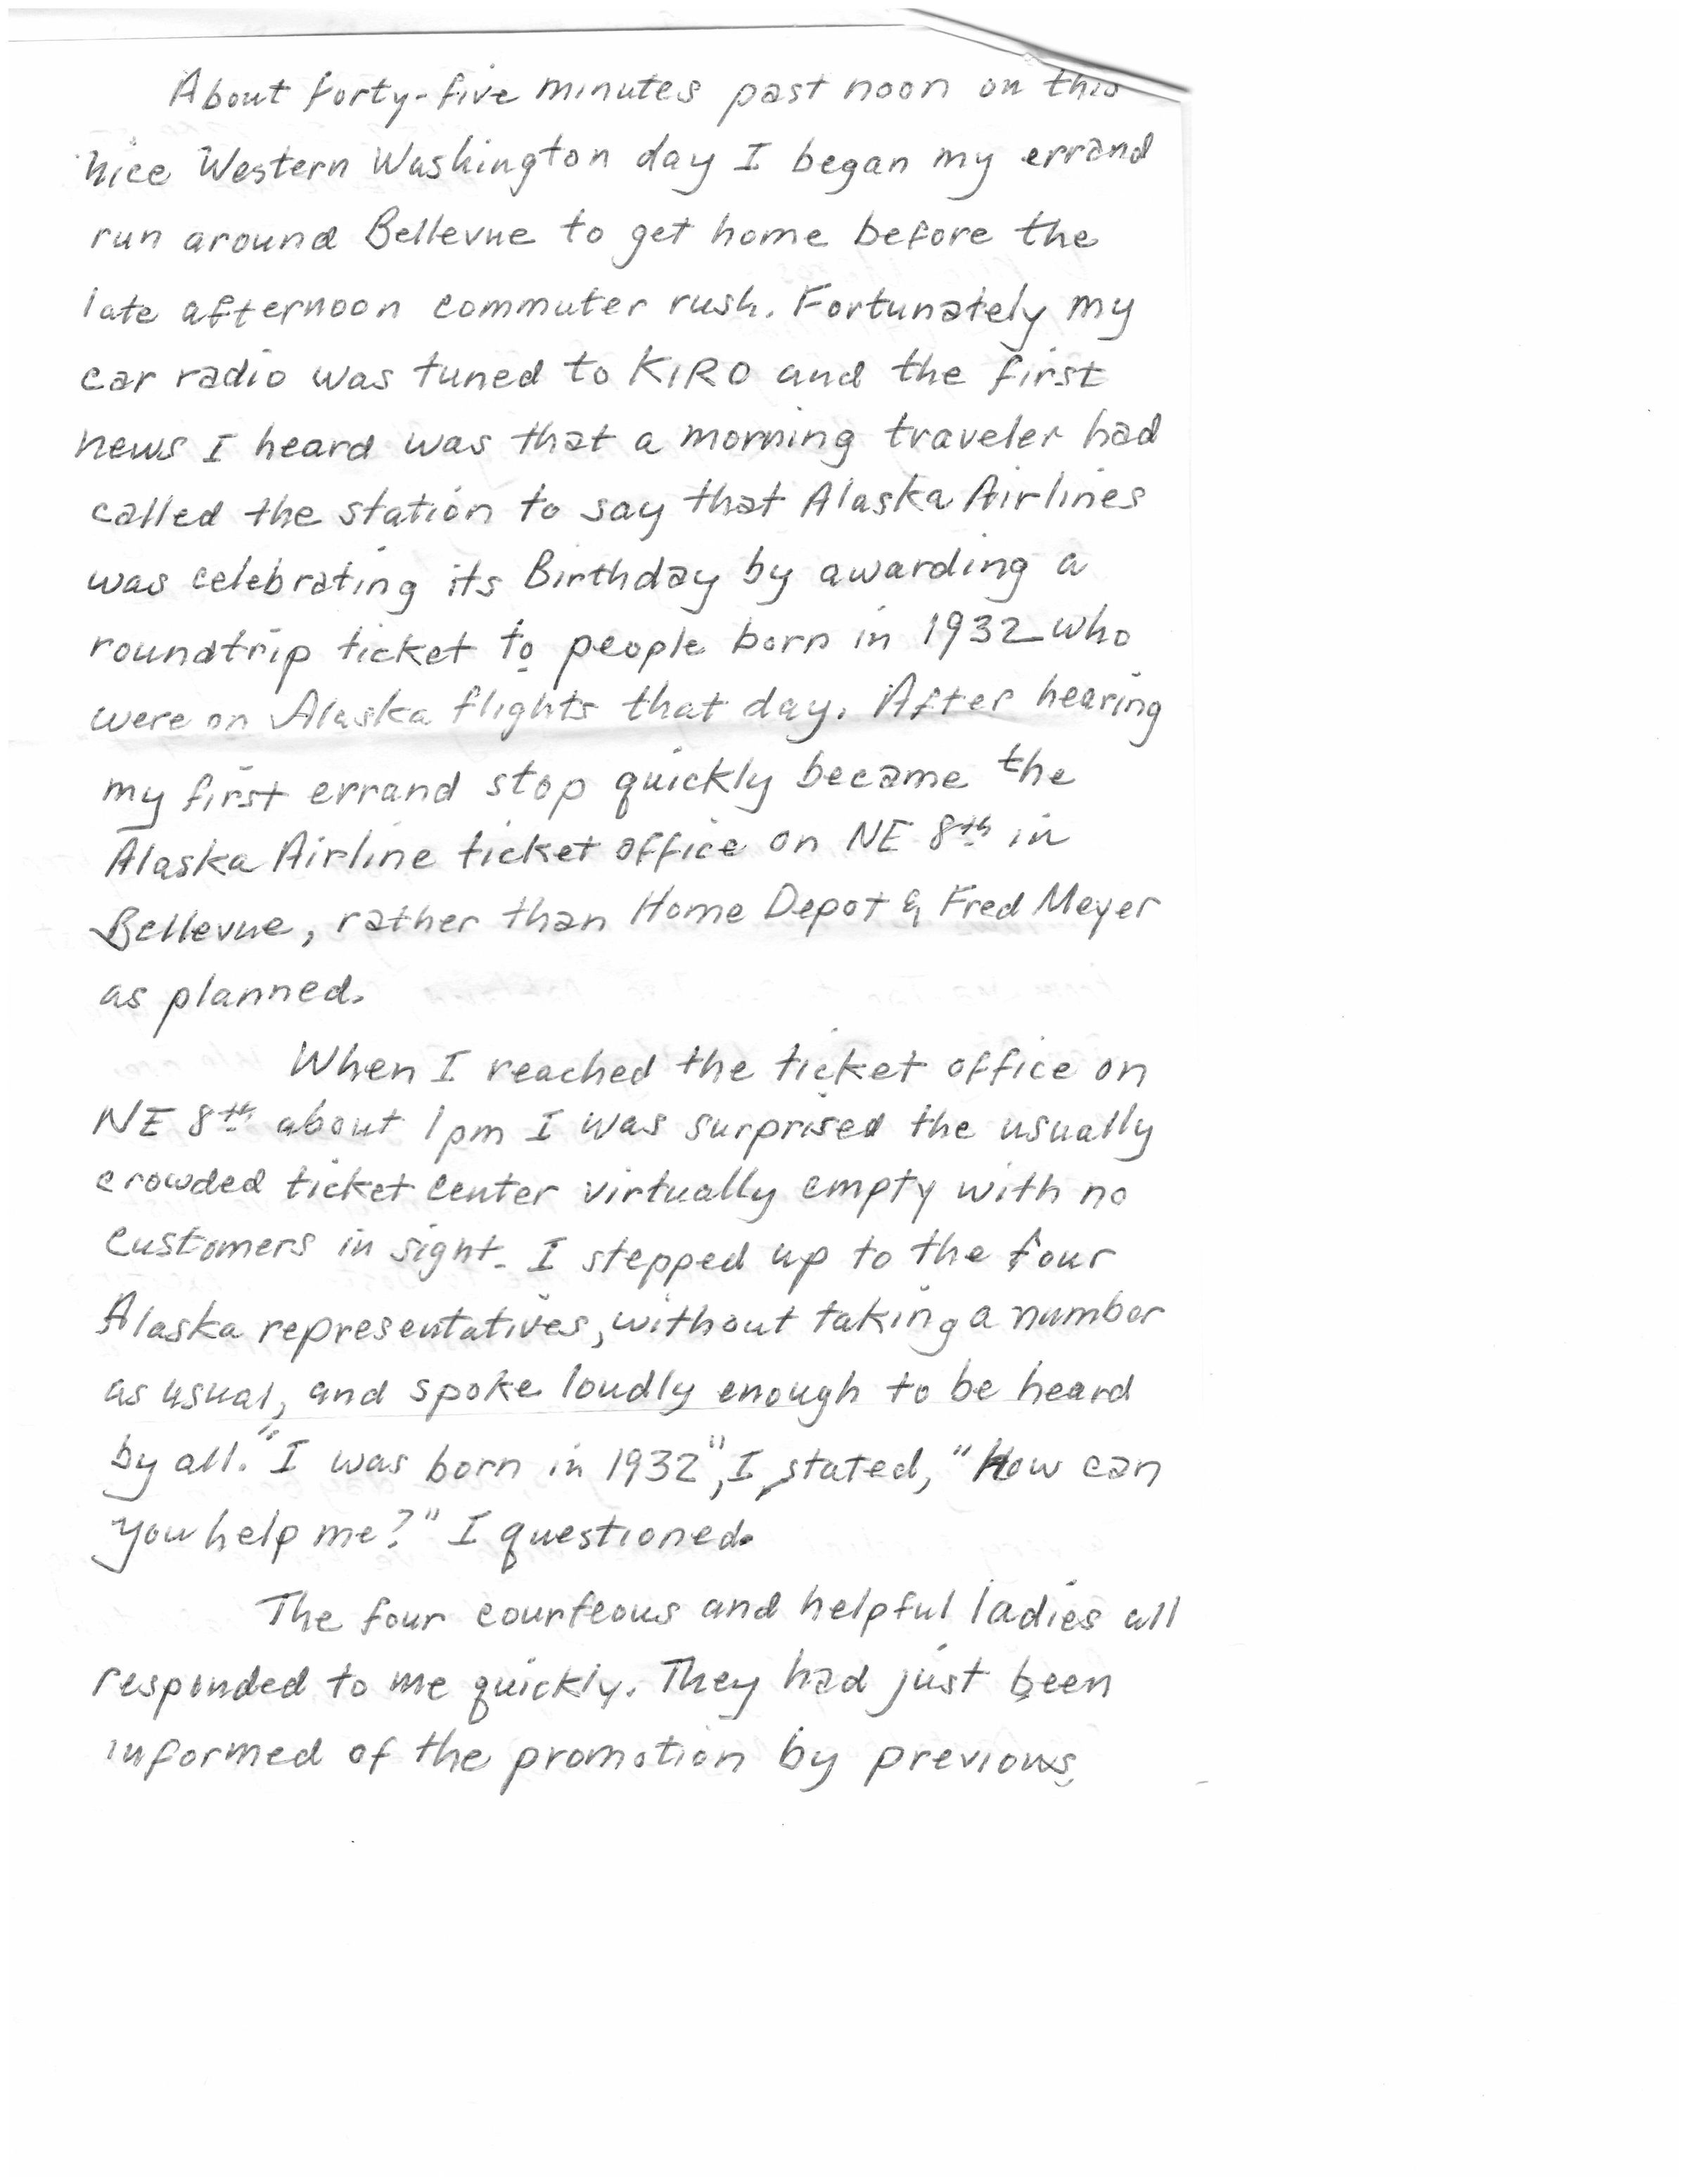 About forty-five minutes past noon on this
nice Western Washington day I began my errand
run around Bellevue to get home before the
late afternoon commuter rush. Fortunately my
car radio was tuned to KIRO and the first
news I heard was that a morning traveler had
called the station to say that Alaska Airlines
was celebrating its Birthday by awarding a
roundtrip ticket to people born in 1932 who
were on Alaska flights that day. After hearing
my first errand stop quickly became the
Alaska Airline ticket office on NE 8th in
Bellevue, rather than Home Depot & Fred Meyer
as planned.
When I reached the ticket office on
NE 8th about 1pm I was surprised the usually
crowded ticket center virtually empty with no
customers in sight. I stepped up to the four
Alaska representatives, without taking a number
as usual, and spoke loudly enough to be heard
by all. "I was born in 1932", I stated, "How can
you help me?" I questioned.
The four courteous and helpful ladies all
responded to me quickly. They had just been
informed of the promotion by previous